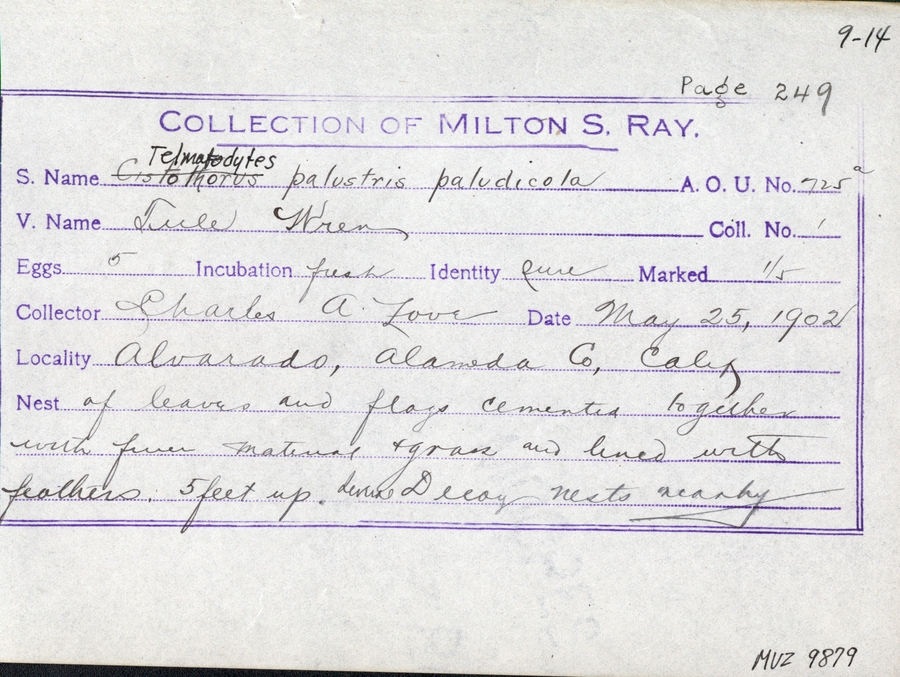 9-14
Page 249
COLLECTION OF MILTON S. RAY.
Telmatodytes
S. Name Cistothorus palustris paludicola A. O. U. No. 725a
V. Name Tule Wren Coll. No. 1
Eggs 5 Incubation fresh Identity sure Marked 1/5
Collector Charles A. Love Date May 25, 1902
Locality Alvarado, Alameda Co, Calif
Nest of leaves and flags cemented together
with finer material & grass and lined with
feathers. 5 feet up. Decoy nests nearby
MVZ 9879